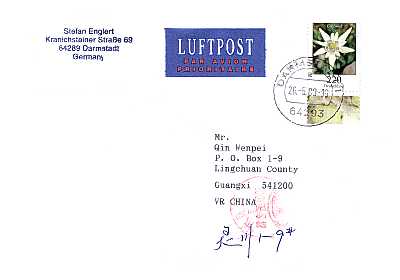 Stefan Englert
Kranichsteiner Straße 69
64289 Darmstadt
Germany
LUFTPOST
PAR AVION
PRIORITAIRE
220
64293
Mr.
Qin Wenpei
P. O. Box 1-9
Lingchuan County
Guangxi 541200
VR CHINA
灵川1-9#